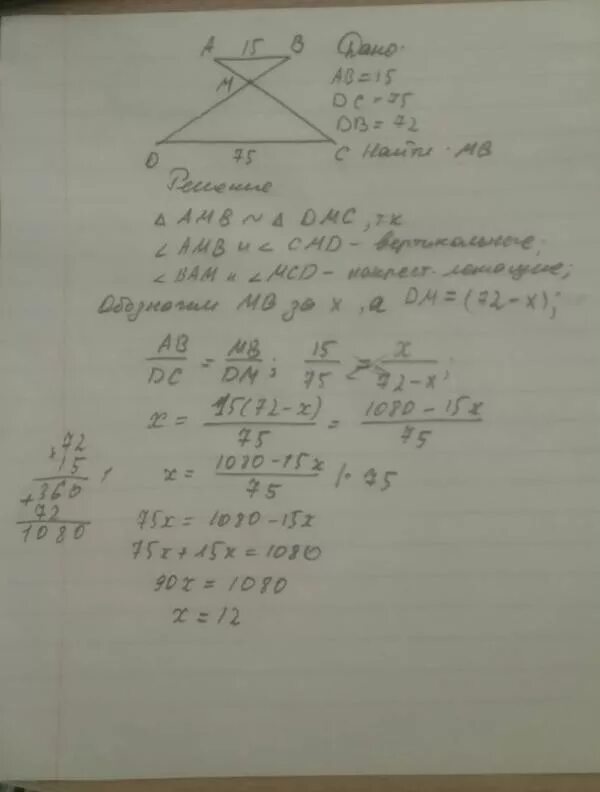 A 15 B
M
D 75 C
Дано:
AB = 15
DC = 75
DB = 72
Найти: MB
Решение
△ AMB ~ △ DMC, т.к
∠ AMB и ∠ CMD - вертикальные;
∠ BAM и ∠ MCD - накрест-лежащие;
Обозначим MB за x, а DM = (72 - x);
AB/DC = MB/DM; 15/75 = x/72 - x;
x = 15(72 - x)/75 = 1080 - 15x/75
x = 1080 - 15x/75 |· 75
75x = 1080 - 15x
75x + 15x = 1080
90x = 1080
x = 12
×72
15
+360
72
1080